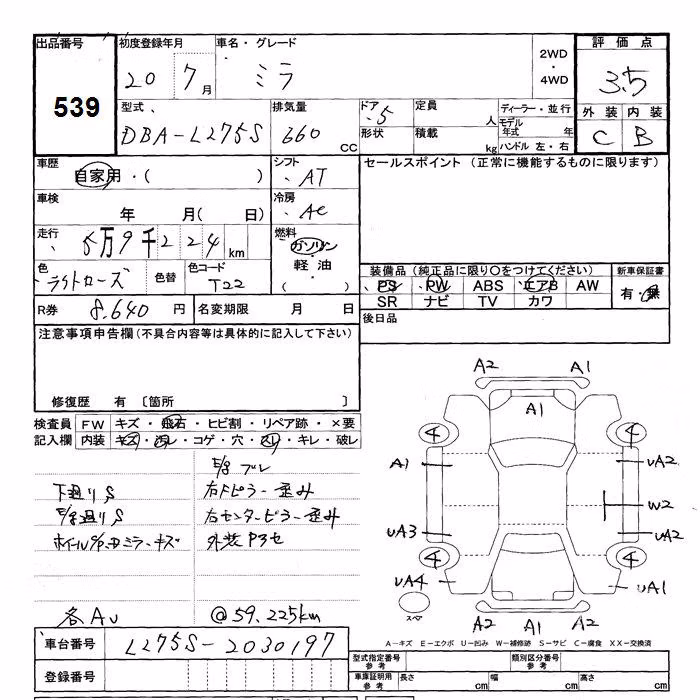 出品番号 初度登録年月 車名・グレード 評価点
539
20 7月 ミラ 2WD・4WD 3.5
型式 排気量 ドア 定員 人 ディーラー・並行 外装 内装
DBA-L275S 660 CC 5 形状 積載 kg モデル年式 年 ハンドル 左・右 C B
車歴 自家用・( ) シフト AT セールスポイント (正常に機能するものに限ります)
車検 年 月( 日) 冷房 AC
走行 5万9千224km 燃料 ガソリン 軽油 ( )
色 ライトローズ 色替 色コード T22
装備品 (純正品に限り○をつけてください) 新車保証書
PS PW ABS エアB AW 有・無
SR ナビ TV カワ
R券 8,640 円 名変期限 月 日 後日品
注意事項申告欄(不具合内容等は具体的に記入して下さい)
修復歴 有 〔箇所 〕
検査員 FW キズ・飛石・ヒビ割・リペア跡・×要
記入欄 内装 キズ・汚レ・コゲ・穴・スレ・キレ・破レ
E/g ブレ
下廻りS 右Fピラー歪み
E/g廻りS 右センターピラー歪み
ホイールC/P・Dミラーキズ
各AU @59,225km
A2 A1
A1
4 4
A1 UA2
W2
UA3 UA2
4 4
UA4 UA1
スペア
A2 A1 A2
A-キズ E-エクボ U-凹み W-補修跡 S-サビ C-腐食 XX-交換済
車台番号 L275S-2030197
型式指定番号 参考 類別区分番号 参考
登録番号 車庫証明用 参考 長さ cm 幅 cm 高さ cm